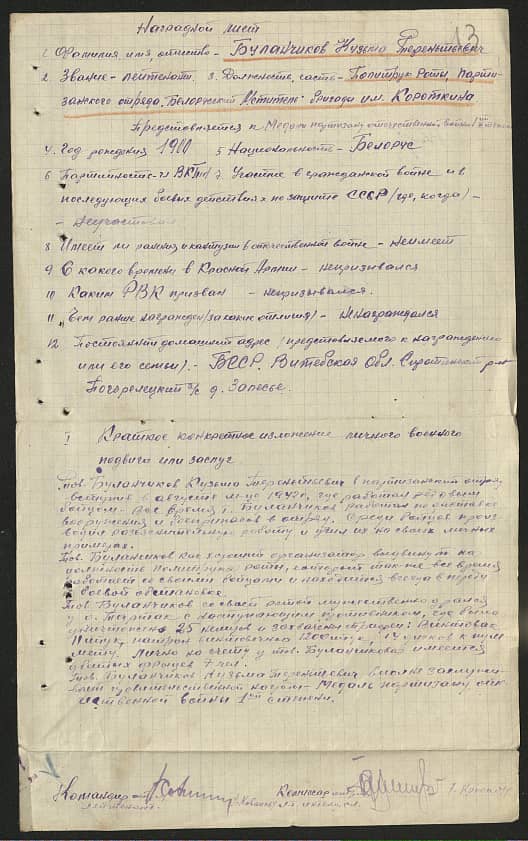 Наградной лист
13
1. Фамилия имя, отчество - Буланчиков Кузьма Терентьевич
2. Звание - лейтенант. 3. Должность, часть - Политрук роты, Парти-
занского отряда "Белорусский Мститель" бригады им. Короткина
Представляется к Медали партизану отечественной войны 1ой степени
4. Год рождения 1911 5 Национальность - Белорус
6 Партийность - ВКП(б) 7. Участие в гражданской войне и в
последующих боевых действиях по защите СССР (где, когда) -
- неучаствовал
8 Имеет ли ранения и контузии в отечественной войне - неимеет
9 С какого времени в Красной Армии - непризывался
10 Каким РВК призван - непризывался.
11 Чем ранее награжден (за какие отличия) - ненаграждался
12 Постоянный домашний адрес (представляемого к награждению
или его семьи). - БССР. Витебская Обл. Сиротинский р-н
Погорелецкий с/с д. Залесье.
I Краткое конкретное изложение личного военного
подвига или заслуг
Тов. Буланчиков Кузьма Терентьевич в партизанский отряд
вступил в августе м-це 1942г, где работал рядовым
бойцом. Все время т. Буланчиков работал
вооружения и боеприпасов в отряд. Среди бойцов прово-
разъяснительную работу и на своих личных
примерах.
Тов. Буланчиков как хороший организатор выдвинут на
должность политрука роты, который также все время
работает со своими бойцами и находится всегда впереди
в боевой обстановке.
Тов. Буланчиков со своей ротой мужественно дрался
у д. с наступающим противником, где было
уничтожено 25 немцев и захвачены трофеи: Винтовок
штук, патрон винтовочных 1200 штук, 14 дисков к пуле-
мету. Лично на счету у тов. Буланчикова имеется
убитых фрицев 7 чел.
Тов. Буланчиков Кузьма Терентьевич вполне заслужи-
вает правительственной награды - Медаль партизану оте-
чественной войны 1ой степени.
Командир Комиссар
лейтенант